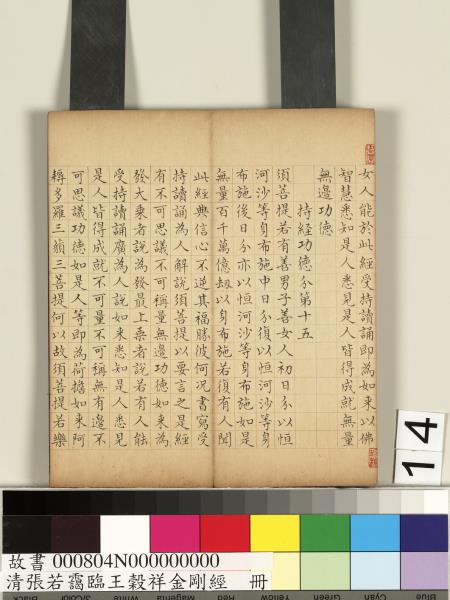 女人能於此經受持讀誦即為如来以佛
智慧悉知是人悉見是人皆得成就無量
無邊功德
持經功德分第十五
須菩提若有善男子善女人初日分以恒
河沙等身布施中日分復以恒河沙等身
布施後日分亦以恒河沙等身布施如是
無量百千萬億劫以身布施若復有人聞
此經典信心不逆其福勝彼何况書寫受
持讀誦為人解說須菩提以要言之是經
有不可思議不可稱量無邊功德如来為
發大乘者說為發最上乘者說若有人能
受持讀誦廣為人說如来悉知是人悉見
是人皆得成就不可量不可稱無有邊不
可思議功德如是人等即為荷擔如来阿
耨多羅三藐三菩提何以故須菩提若樂
14
故書 000804N000000000
清張若靄臨王穀祥金剛經 冊
Black
3/Color
White
Magenta
Red
Yellow
Green
Cyan
Blue